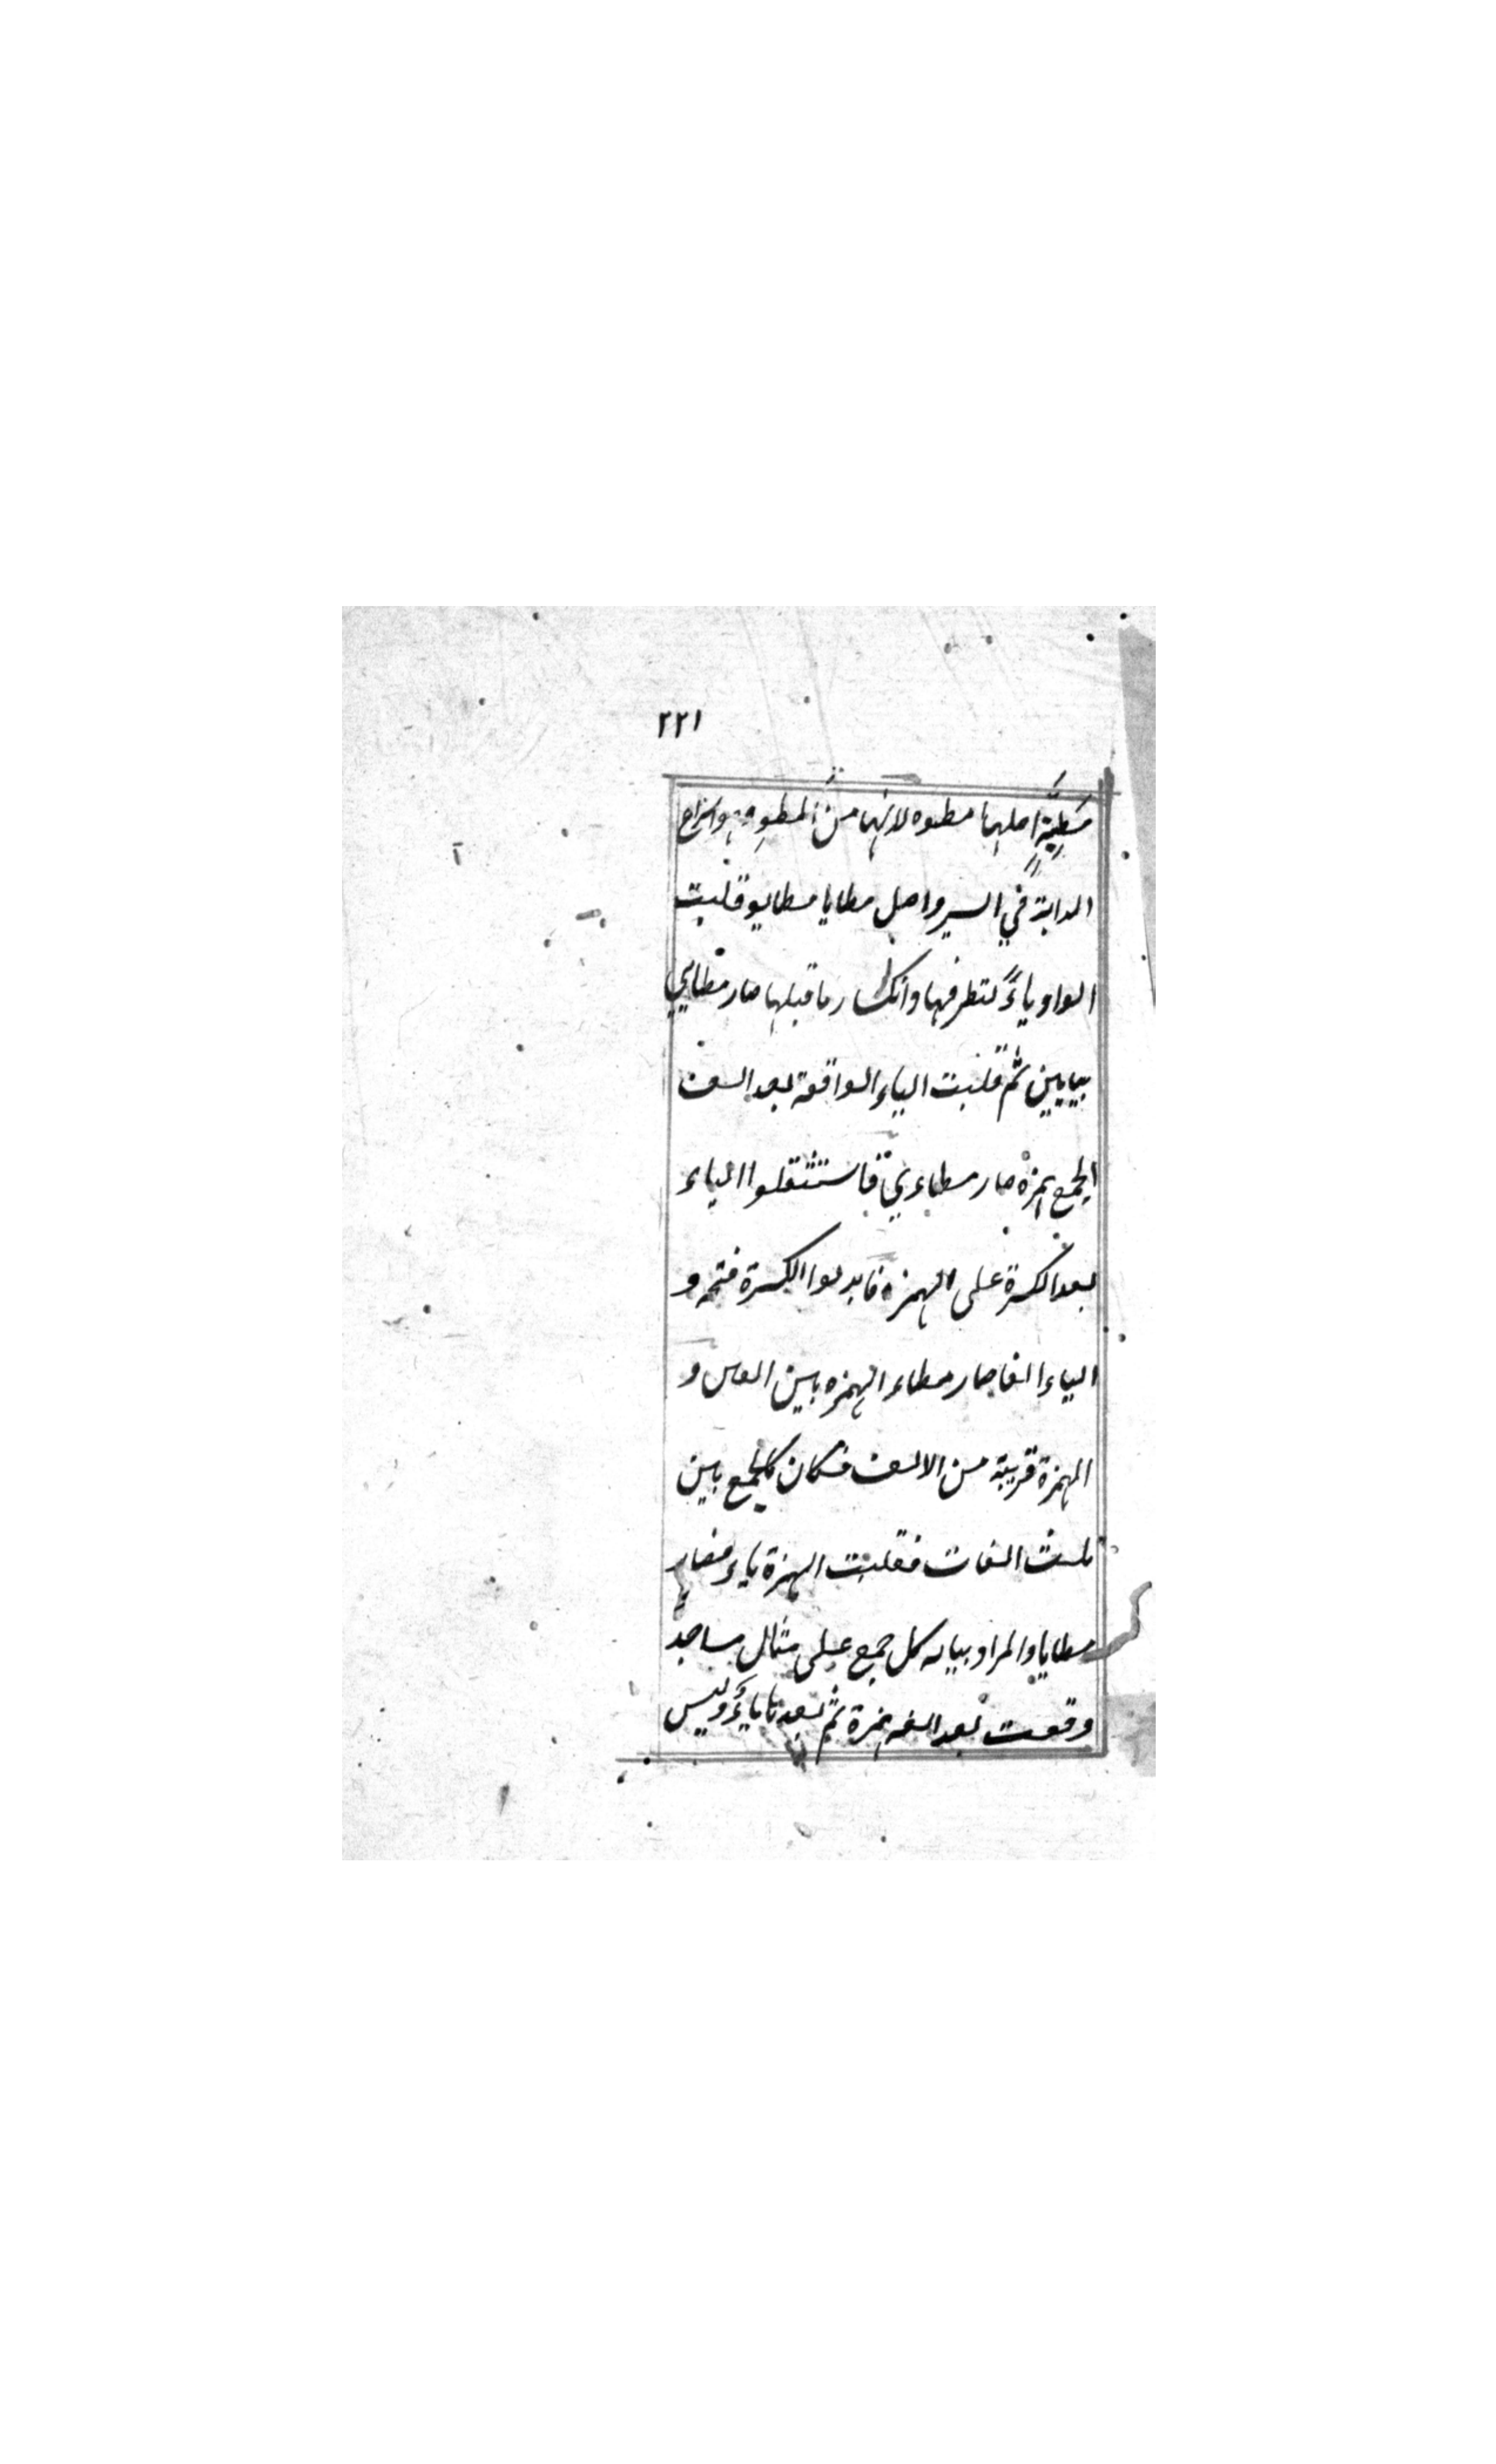 ٢٢١
مَطِيَّةٍ اصلها مطيوه لانها من المطو وهو اسراع
الدابة في السير واصل مطايا مطايو قلبت
الواو ياءً لتطرفها وانكسار ما قبلها صار مطايي
بيايين ثم قلبت الياء الواقعة بعد الف
الجمع همزة صار مطاءي فاستثقلوا الياء
بعد الكسرة على الهمزه فابدلوا الكسرة فتحه و
الياء الفا صار مطاء الهمزه بين الفين و
الهمزة قريبة من الالف فكان كالجمع بين
ثلث الفات فقلبت الهمزة ياء فصار
مطايا والمراد بيانه كل جمع على مثال مساجد
وقعت بعد الفه همزة ثم بعدها ياءً وليس